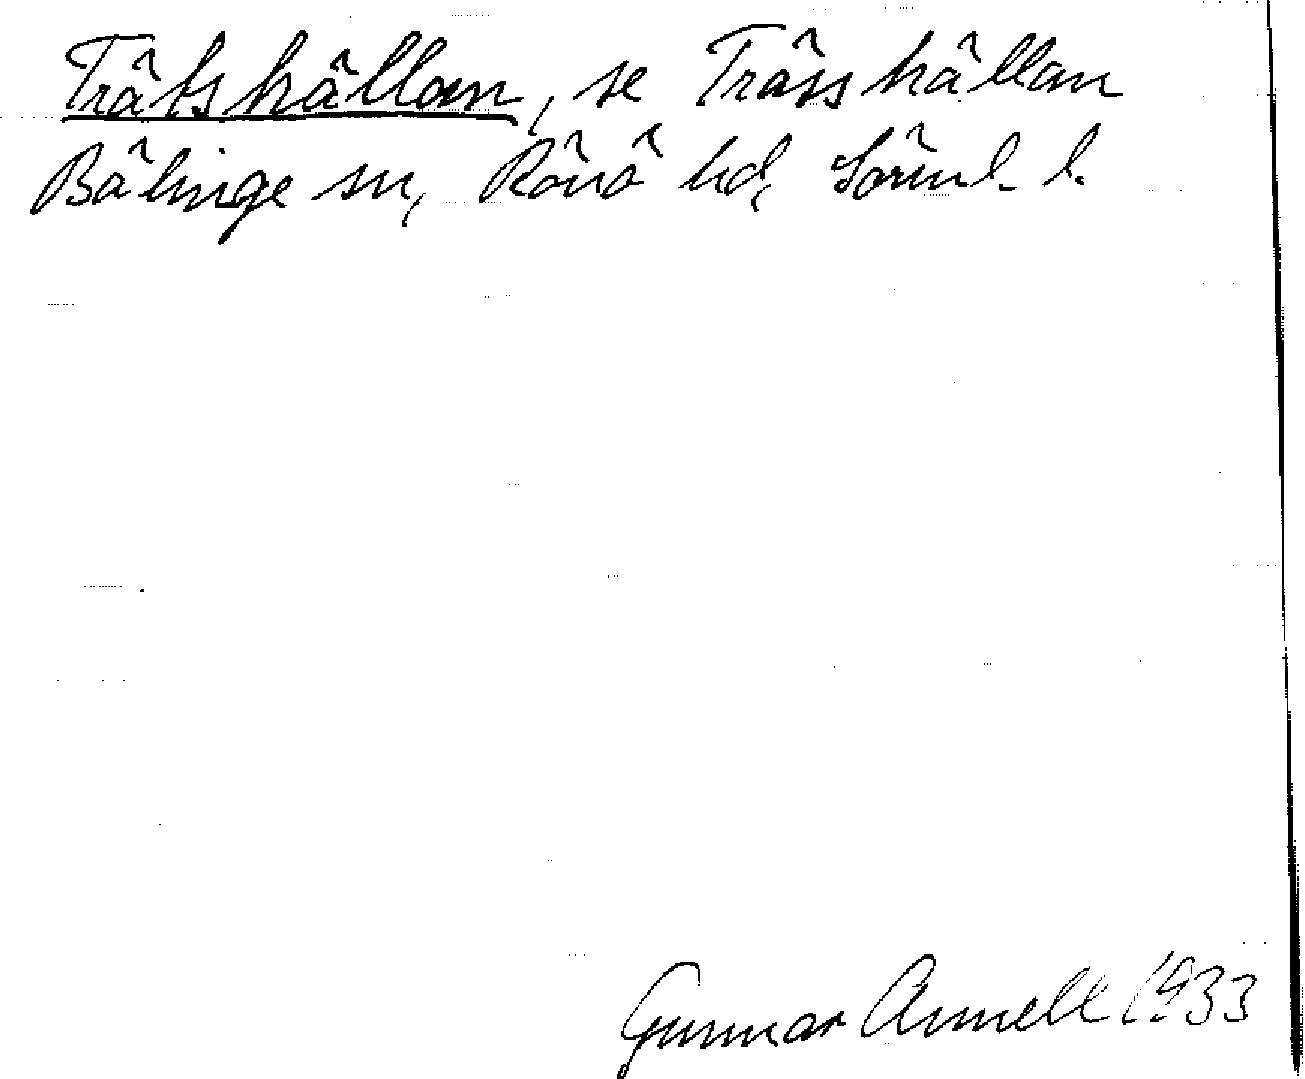 Trätshällan, se Trässhällan
Bälinge sn, Rönö hd, Sörml. l.
Gunnar Annell 1933